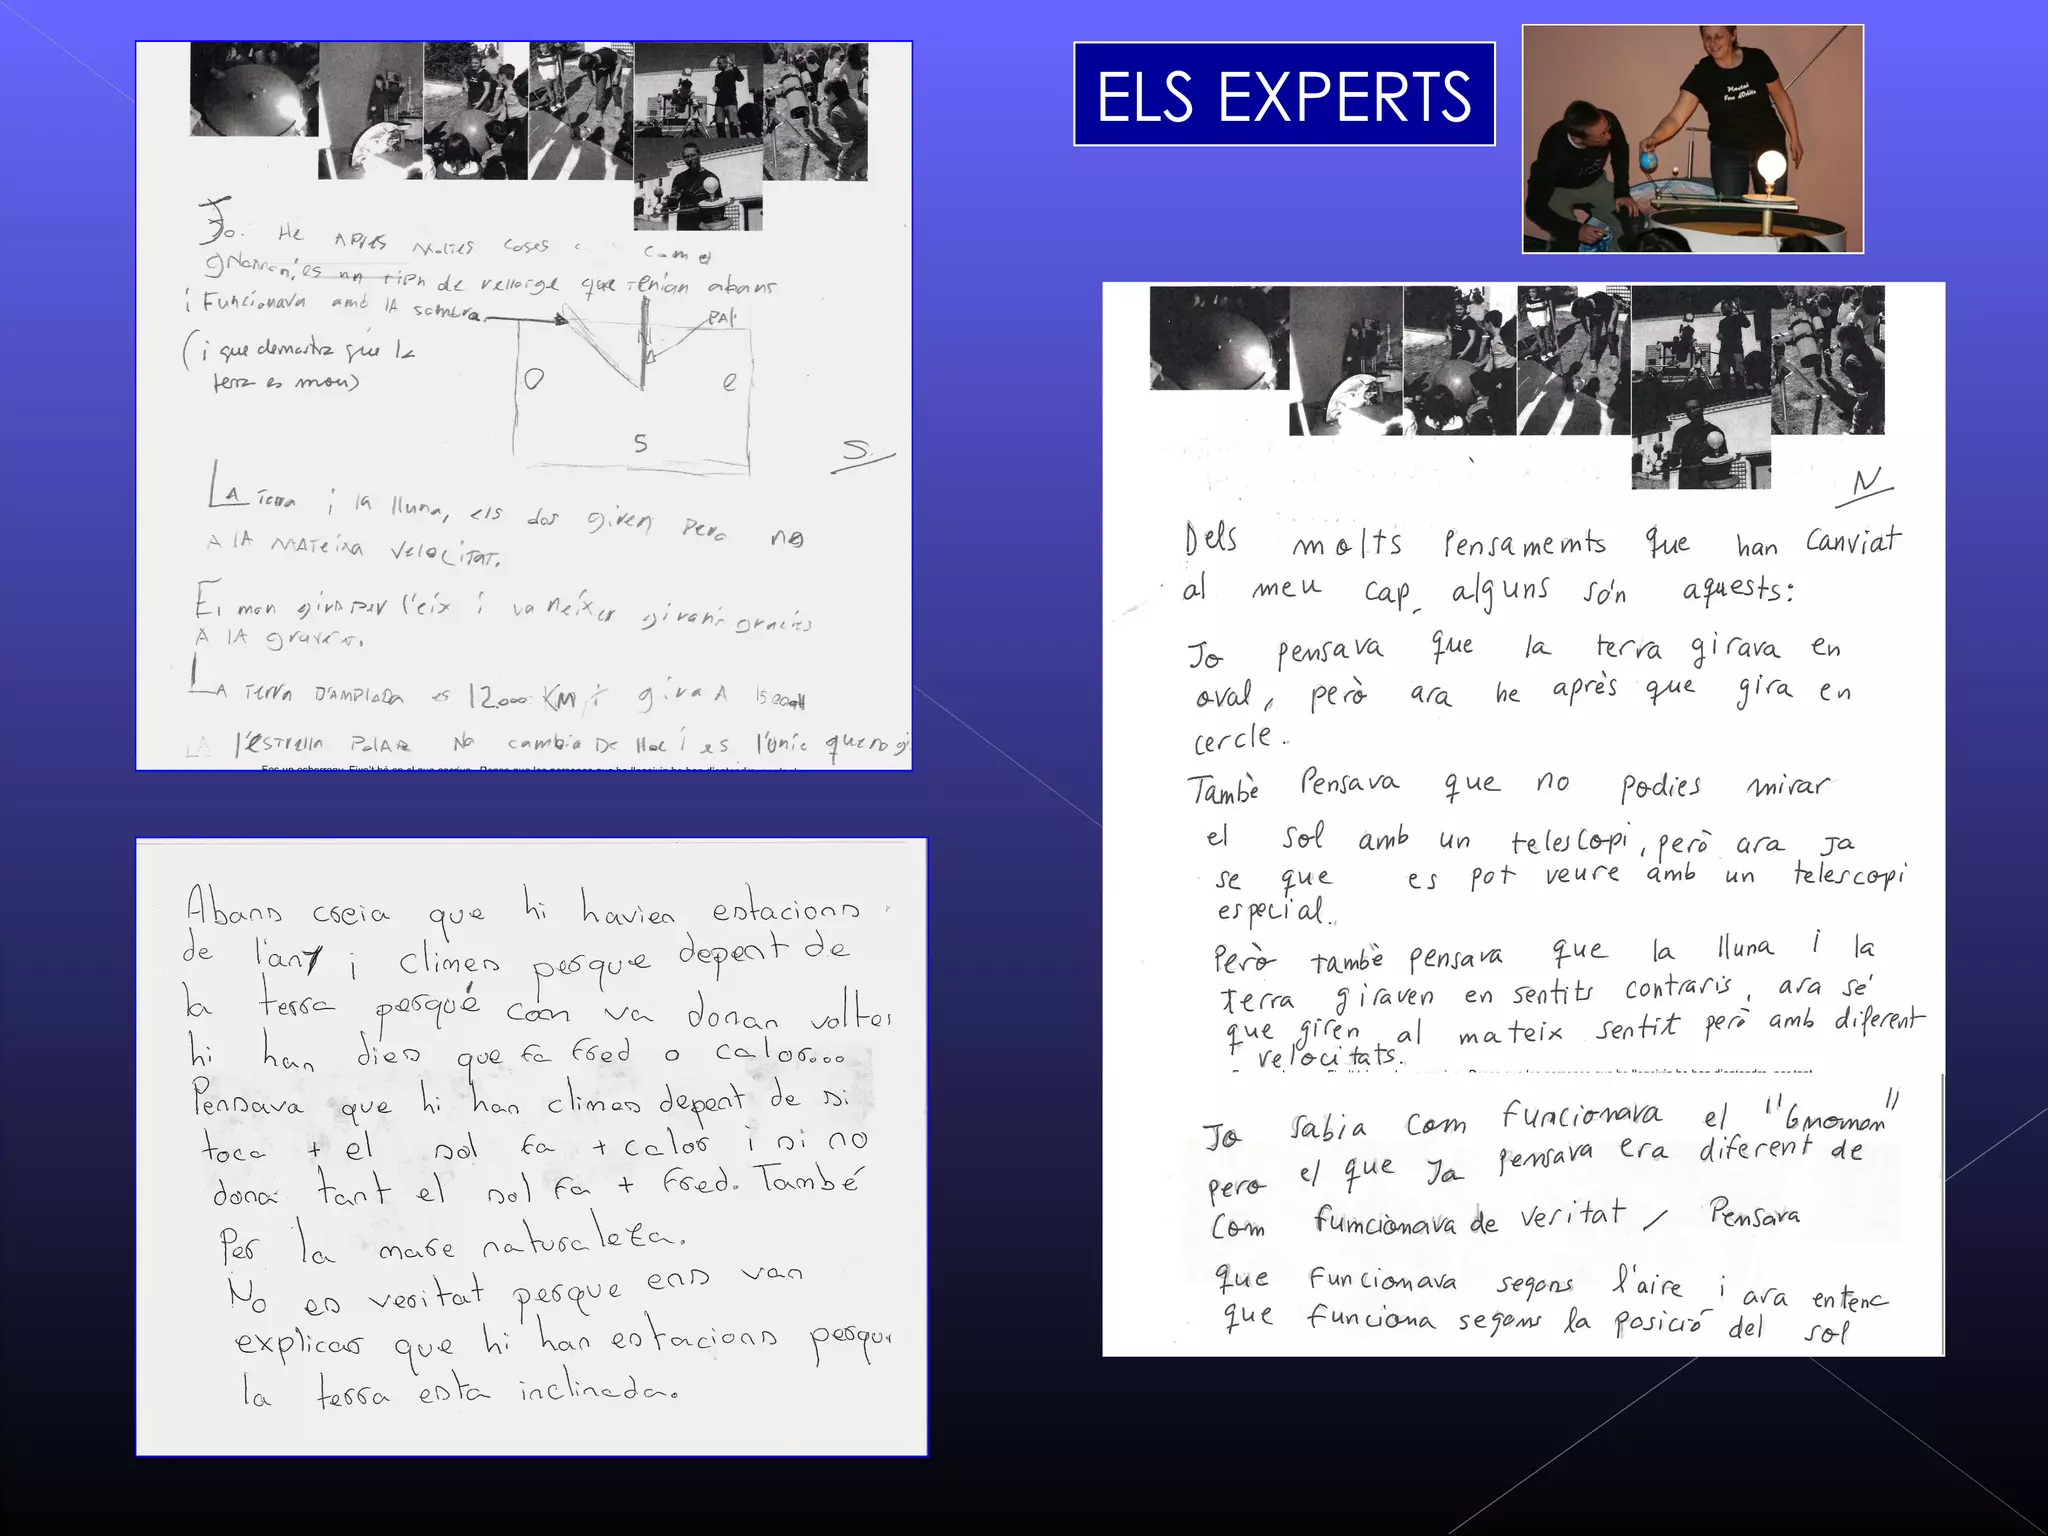 ELS EXPERTS
Jo. He APRES MOLTES COSES COM el
gnomon, es un tipn de rellorge que tenían abans
i Funcionava amb lA sombra.
PAL
(i que demostra que la
terra es mou)
O
e
S
S.
LA Terra i la lluna, els dos giren pero no
A lA MATEIXA VelocitAT.
El mon gira per l'eix i va neixer girant gracies
A lA gravetat.
LA Terra D'AMPLADA es 12.000 KM i giva A
LA l'ESTrella PolAR No cambia De lloc i es l'únic que no gi
Abans creia que hi havien estacions
de l'any i climes perque depent de
la terra perqué com va donan voltes
hi han dies que fa fred o calor...
Pensava que hi han climes depent de si
toca + el sol fa + calor i si no
dona tant el sol fa + fred. També
Per la mare naturaleta.
No es veritat perque ens van
explicar que hi han estacions perqu
la terra esta inclinada.
N
Dels molts Pensamemts que han canviat
al meu cap, alguns són aquests:
Jo pensava que la terra girava en
oval, però ara he après que gira en
cercle.
Tambè Pensava que no podies mirar
el sol amb un telescopi, però ara ja
se que es pot veure amb un telescopi
especial.
Però tambè pensava que la lluna i la
terra giraven en sentits contraris, ara sé
que giren al mateix sentit però amb diferent
velocitats.
Jo sabia com funcionava el "Gnomon"
pero el que Ja pensava era diferent de
com fumcionava de veritat, Pensava
que Funcionava segons l'aire i ara entenc
que funciona segons la posició del sol